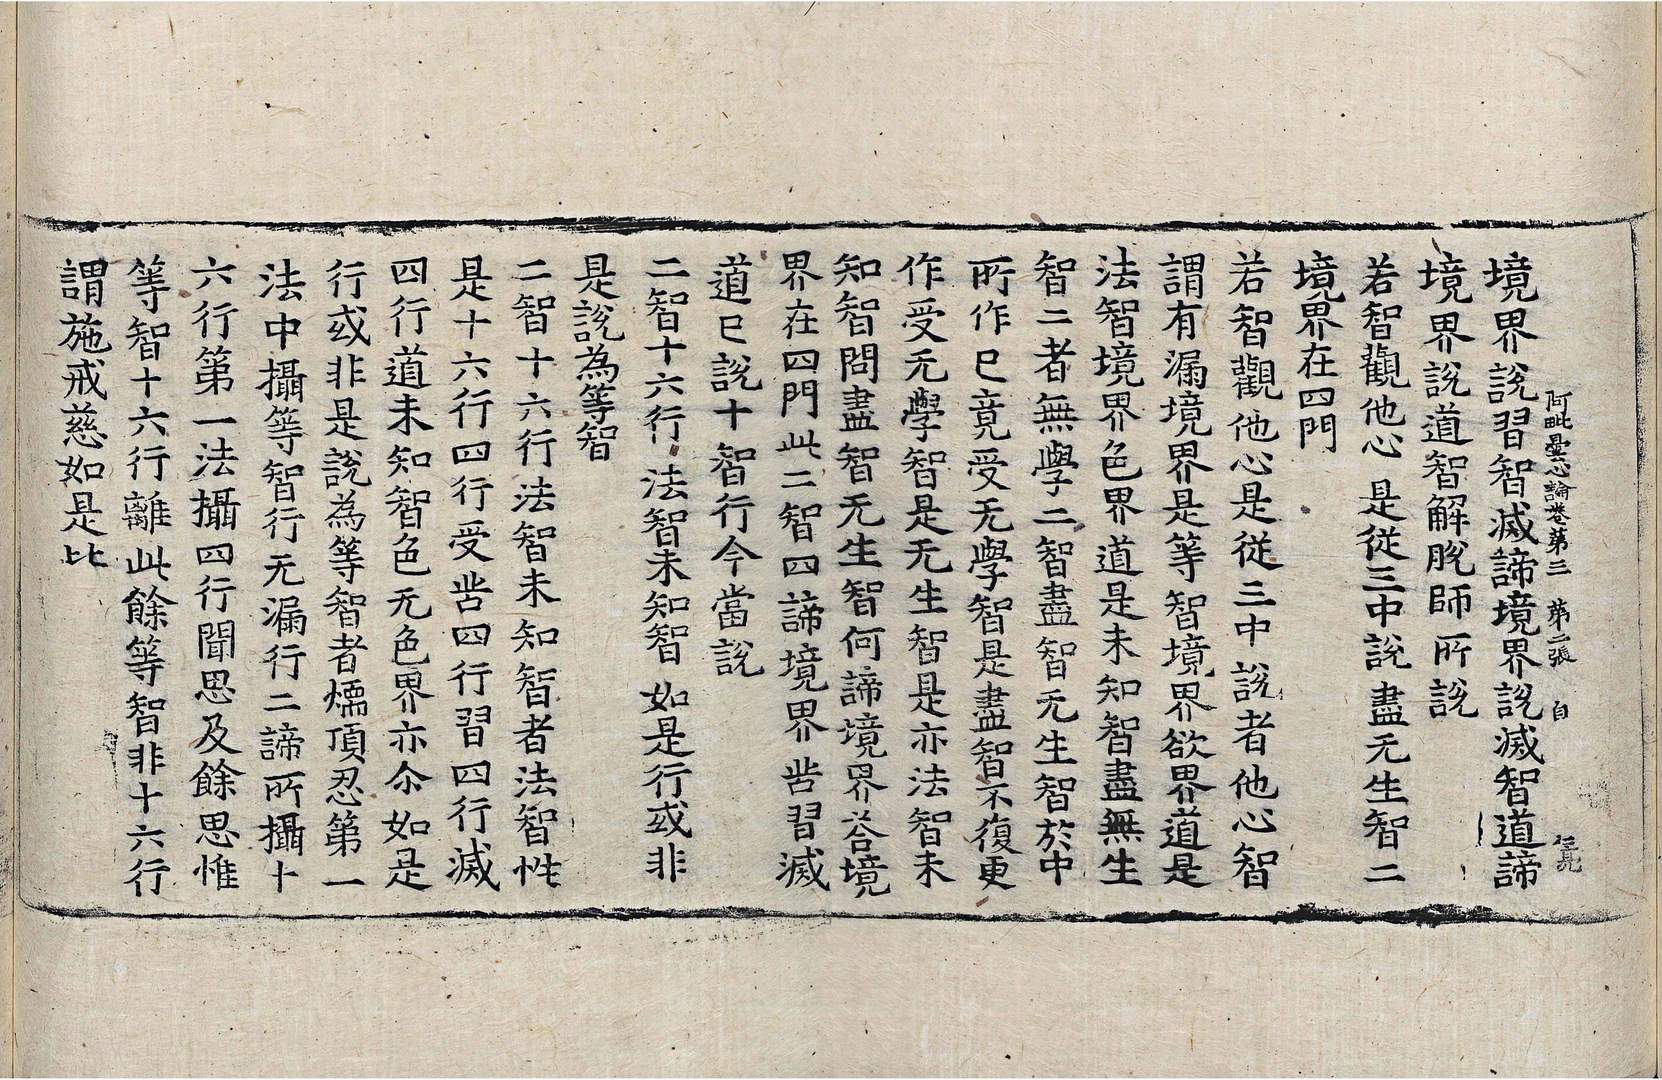 阿毗曇心論卷第三 第二張 自
境界說習智滅諦境界說滅智道諦
境界說道智解脫師所說
若智觀他心 是從三中說 盡无生智二
境界在四門
若智觀他心是從三中說者他心智
謂有漏境界是等智境界欲界道是
法智境界色界道是未知智盡無生
智二者無學二智盡智无生智於中
所作已竟受无學智是盡智不復更
作受无學智是无生智是亦法智未
知智問盡智无生智何諦境界答境
界在四門此二智四諦境界苦習滅
道已說十智行今當說
二智十六行 法智未知智 如是行或非
是說為等智
二智十六行法智未知智者法智性
是十六行四行受苦四行習四行滅
四行道未知智色无色界亦尒如是
行或非是說為等智者煗頂忍第一
法中攝等智行无漏行二諦所攝十
六行第一法攝四行聞思及餘思惟
等智十六行離此餘等智非十六行
謂施戒慈如是比